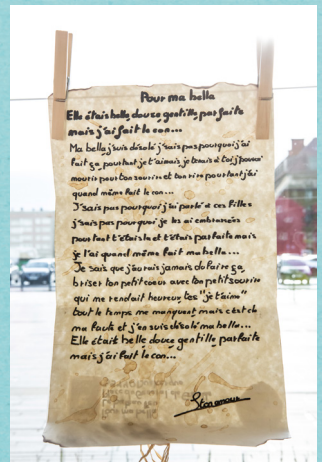 Pour ma belle
Elle étais belle, douce gentille, parfaite
mais j'ai fait le con...
Ma belle, j'suis désolé j'sais pas pourquoi j'ai
fait ça, pourtant je t'aimais, je tenais à toi, j'pouvai
mourir pour ton sourire et ton rire pourtant j'ai
quand même fait le con...
J'sais pas pourquoi j'ai parlé à ces filles
j'sais pas pourquoi je les ai embrassées
pourtant t'étais la et t'étais parfaite mais
je l'ai quand même fait ma belle...
Je sais que j'aurais jamais du faire ça
briser ton petit coeur avec ton petit sourire
qui me rendait heureux, tes "je t'aime"
tout le temps me manquent mais c'est de
ma faute et j'en suis désolé ma belle...
Elle était belle douce gentille parfaite
mais j'ai fait le con...
Ston amour